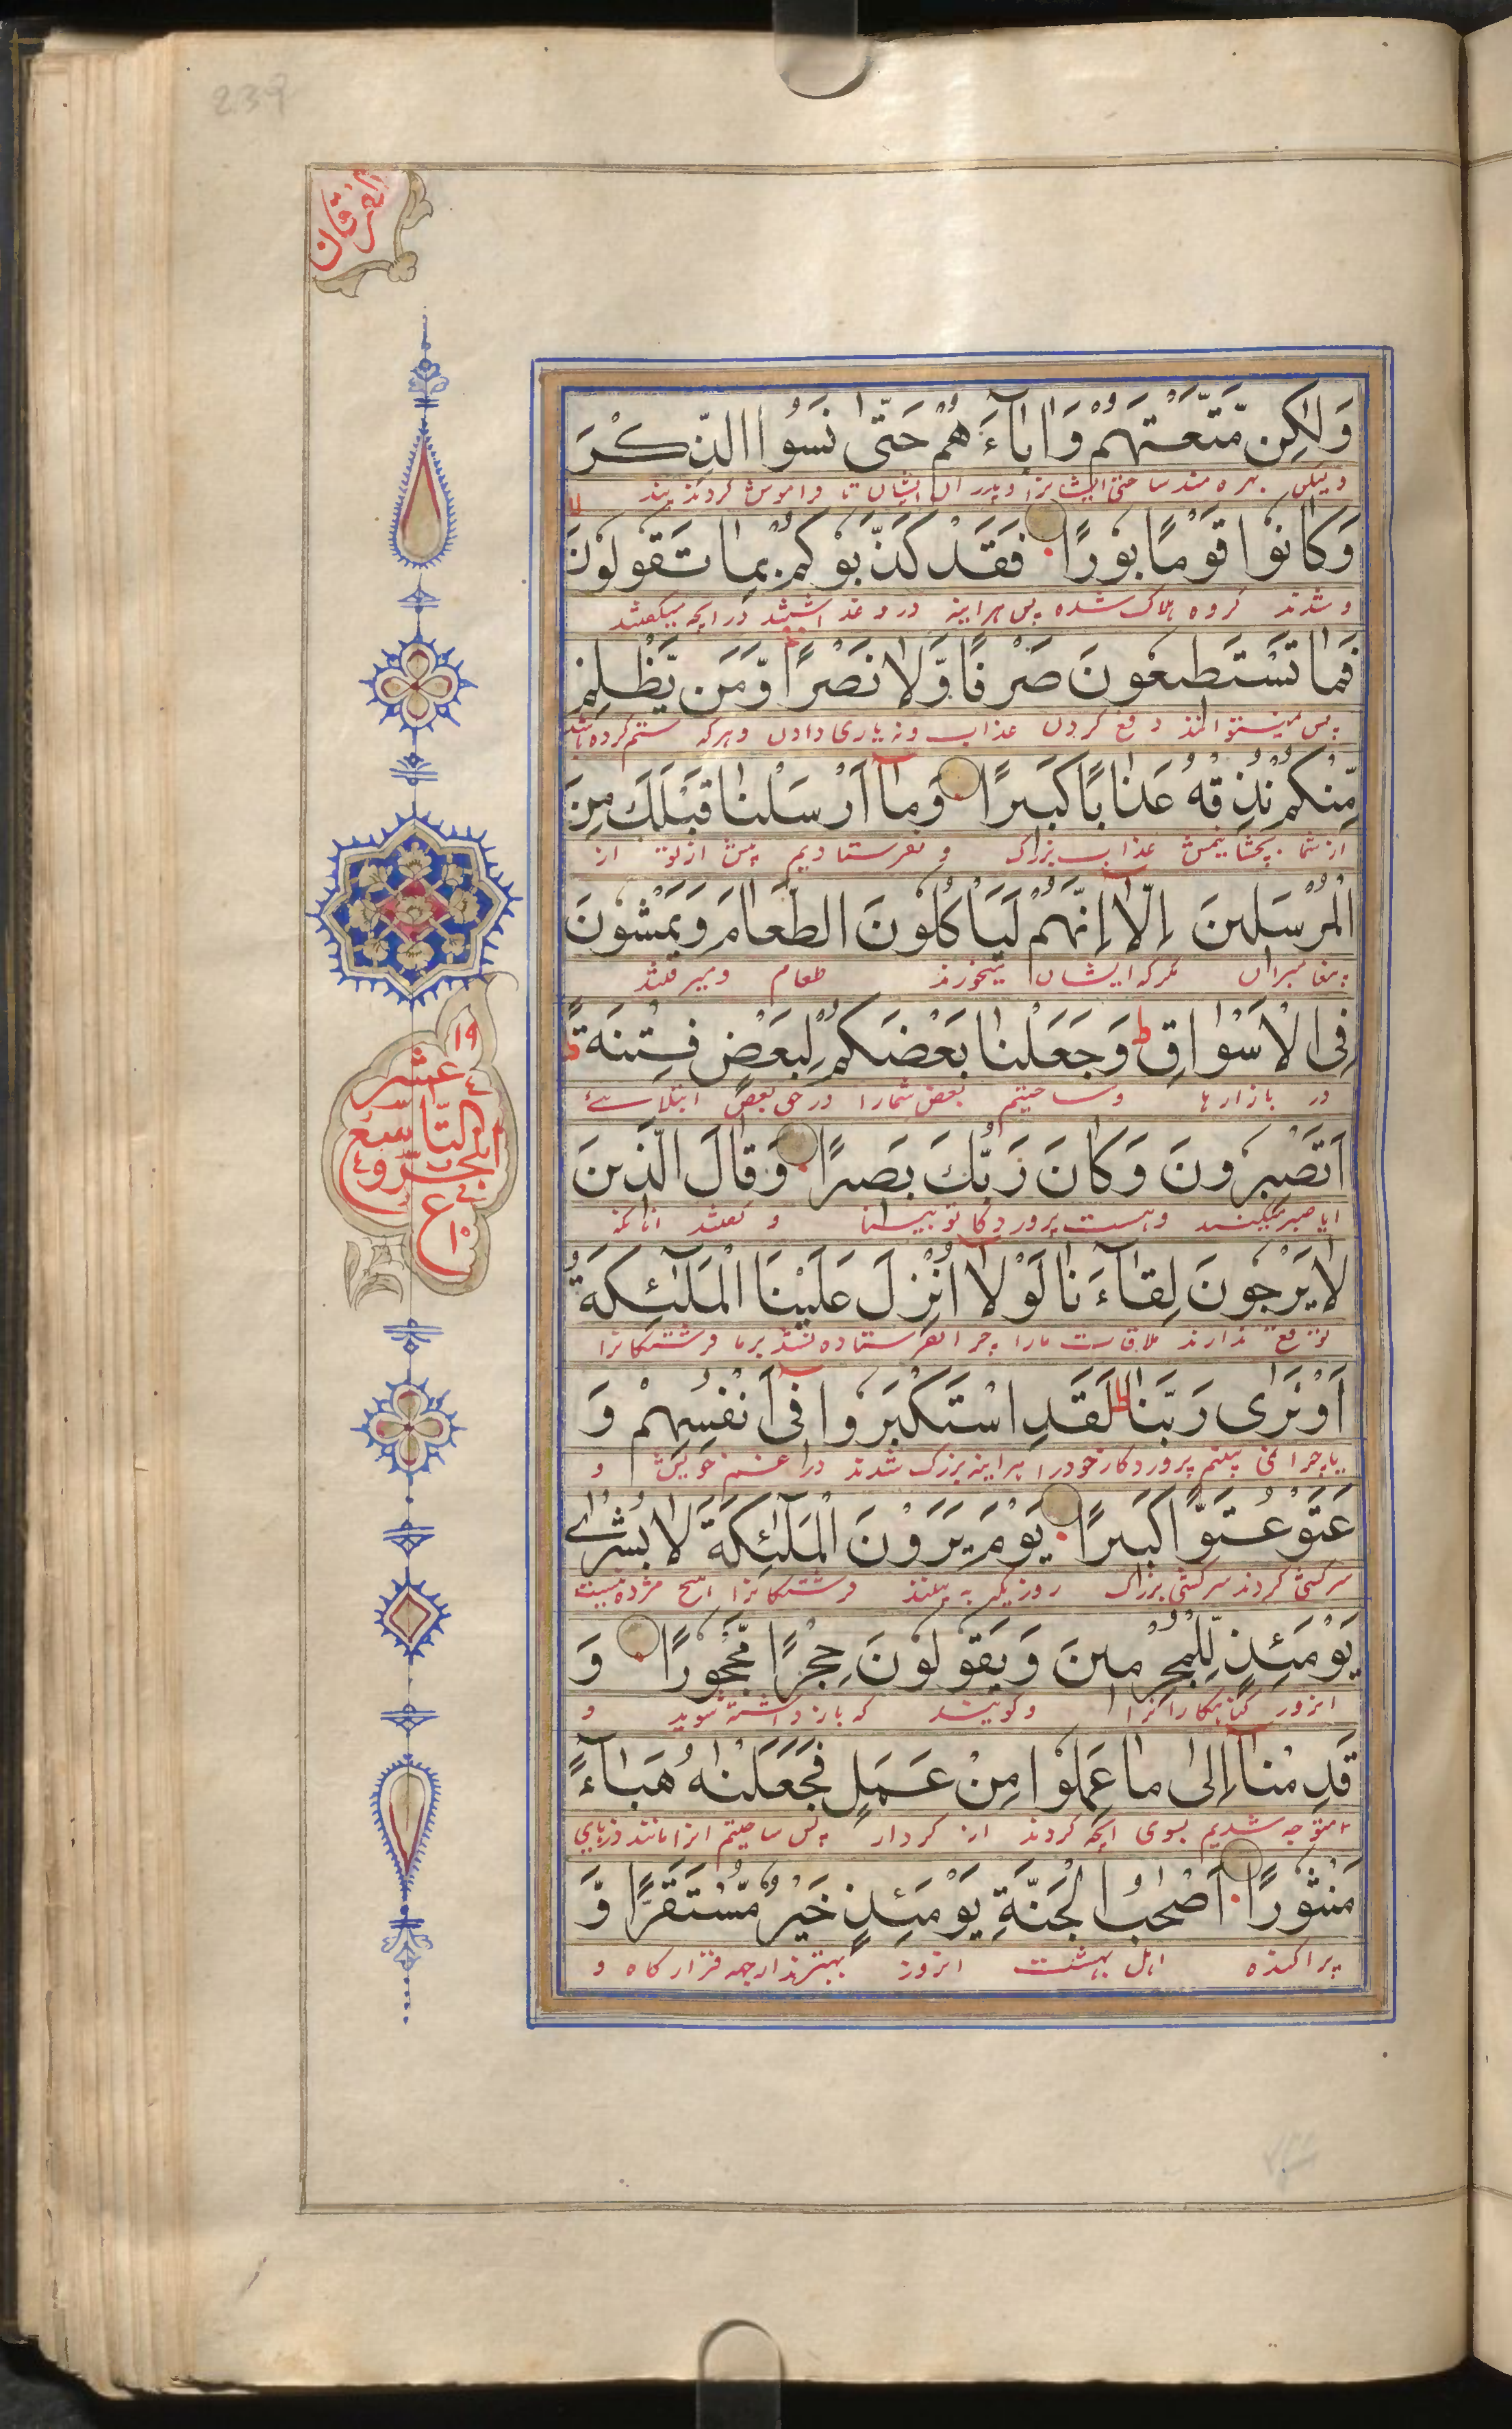 239
الفرقان
وَلٰكِن مَّتَّعْتَهُمْ وَاٰبَاۤءَهُمْ حَتّٰى نَسُوا الذِّكْرَ
و لیکن بهره مند ساختی ایشانرا و پدران ایشان تا فراموش کردند پند
وَكَانُوْا قَوْمًا بُوْرًا فَقَدْ كَذَّبُوْكُمْ بِمَا تَقُوْلُوْنَ
و شدند گروه هلاک شده پس هراینه دروغ داشتند در انچه میگفتند
فَمَا تَسْتَطِيعُونَ صَرْفًا وَّلَا نَصْرًا وَّمَن يَّظْلِمْ
پس نمیتوانند دفع کردن عذاب و نه یاری دادن و هرکه ستم کرده باشد
مِّنْكُمْ نُذِقْهُ عَذَابًا كَبِيرًا وَمَآ اَرْسَلْنَا قَبْلَكَ مِنَ
از شما بچشانیمش عذاب بزرگ و نفرستادیم پیش از تو از
الْمُرْسَلِينَ اِلَّآ اِنَّهُمْ لَيَاْكُلُونَ الطَّعَامَ وَيَمْشُونَ
پیغامبران مگر که ایشان میخورند طعام و میرفتند
فِى الْاَسْوَاقِ ط وَجَعَلْنَا بَعْضَكُمْ لِبَعْضٍ فِتْنَةً ط
در بازارها و ساختیم بعض شمارا در حق بعض ابتلائے
اَتَصْبِرُونَ وَكَانَ رَبُّكَ بَصِيرًا وَقَالَ الَّذِينَ
ایا صبر میکنید و هست پروردگار تو بینا و گفتند انانکه
١٩
ع
عشر
التاسع
الجزو
ع
١٠
لَا يَرْجُونَ لِقَآءَنَا لَوْلَآ اُنْزِلَ عَلَيْنَا الْمَلٰٓئِكَةُ
توقع ندارند ملاقات مارا چرا نفرستاده شد بر ما فرشتگانرا
اَوْ نَرٰى رَبَّنَا ط لَقَدِ اسْتَكْبَرُوا فِىٓ اَنْفُسِهِمْ وَ
یا چرا نمی بینیم پروردگار خود را هراینه بزرگ شدند در خویش و
عَتَوْ عُتُوًّا كَبِيرًا يَوْمَ يَرَوْنَ الْمَلٰٓئِكَةَ لَا بُشْرٰى
سرکشی کردند سرکشی بزرگ روزیکه به بینند فرشتگانرا هیچ مژده نیست
يَوْمَئِذٍ لِّلْمُجْرِمِينَ وَيَقُولُونَ حِجْرًا مَّحْجُورًا وَ
انروز گناهکارانرا و گویند که باز داشته شوید و
قَدِمْنَآ اِلٰى مَا عَمِلُوا مِنْ عَمَلٍ فَجَعَلْنٰهُ هَبَآءً
متوجه شدیم بسوی انچه کردند از کردار پس ساختیم انرا مانند ذرہای
مَنْثُورًا اَصْحٰبُ الْجَنَّةِ يَوْمَئِذٍ خَيْرٌ مُّسْتَقَرًّا وَّ
پراکنده اهل بهشت انروز بهترند از جهه قرارگاه و